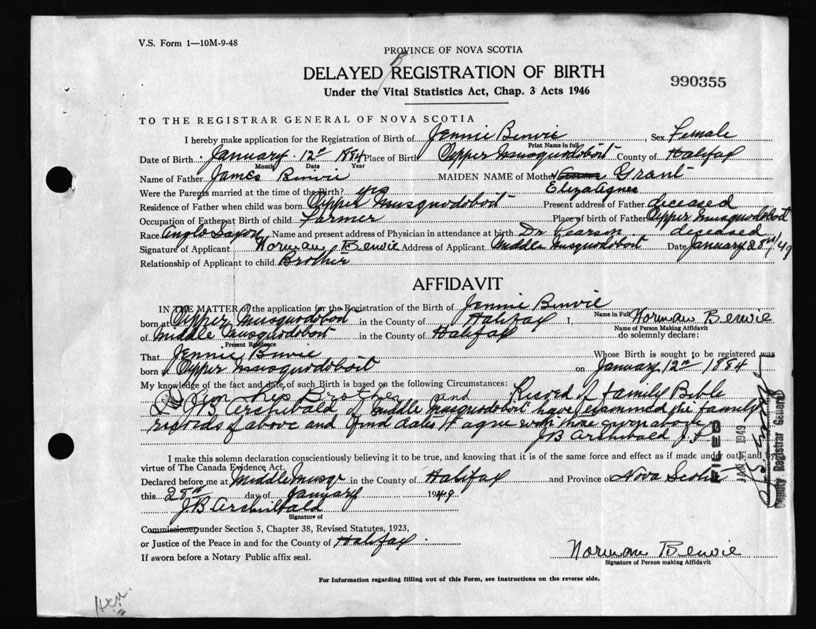 V.S. Form 1—10M-9-48
PROVINCE OF NOVA SCOTIA
DELAYED REGISTRATION OF BIRTH
Under the Vital Statistics Act, Chap. 3 Acts 1946
990355
TO THE REGISTRAR GENERAL OF NOVA SCOTIA
I hereby make application for the Registration of Birth of Jennie Benvie, Sex Female
Print Name in full
Date of Birth January 12th 1884 Place of Birth Upper Musquodoboit County of Halifax
Month Date Year
Name of Father James Benvie MAIDEN NAME of Mother Grant
Were the Parents married at the time of the Birth? yes Eliza Agnes
Residence of Father when child was born Upper Musquodoboit Present address of Father deceased
Occupation of Father at Birth of child Farmer Place of birth of Father Upper Musquodoboit
Race Anglo Saxon Name and present address of Physician in attendance at birth Dr Pearson deceased
Signature of Applicant Norman Benvie Address of Applicant Middle Musquodoboit Date January 28th/49
Relationship of Applicant to child Brother
AFFIDAVIT
IN THE MATTER of the application for the Registration of the Birth of Jennie Benvie
born at Upper Musquodoboit in the County of Halifax I, Norman Benvie
Name in Full
Name of Person Making Affidavit
of Middle Musquodoboit in the County of Halifax do solemnly declare:
Present Residence
That Jennie Benvie Whose Birth is sought to be registered was
born at Upper Musquodoboit on January 12th 1884
My knowledge of the fact and date of such Birth is based on the following Circumstances:
I am her Brother and Record of Family Bible
I JB Archibald of Middle Musquodoboit have examined the family
records of above and find dates to agree with those given above
JB Archibald J.P.
I make this solemn declaration conscientiously believing it to be true, and knowing that it is of the same force and effect as if made under oath and by
virtue of The Canada Evidence Act.
Declared before me at Middle Musqt in the County of Halifax and Province of Nova Scotia
this 28th day of January 1949
JB Archibald
Signature of
Commissioner under Section 5, Chapter 38, Revised Statutes, 1923,
or Justice of the Peace in and for the County of Halifax.
If sworn before a Notary Public affix seal.
Norman Benvie
Signature of Person making Affidavit
For Information regarding filling out of this Form, see Instructions on the reverse side.
FILED
JAN 31 1949
Deputy Registrar General